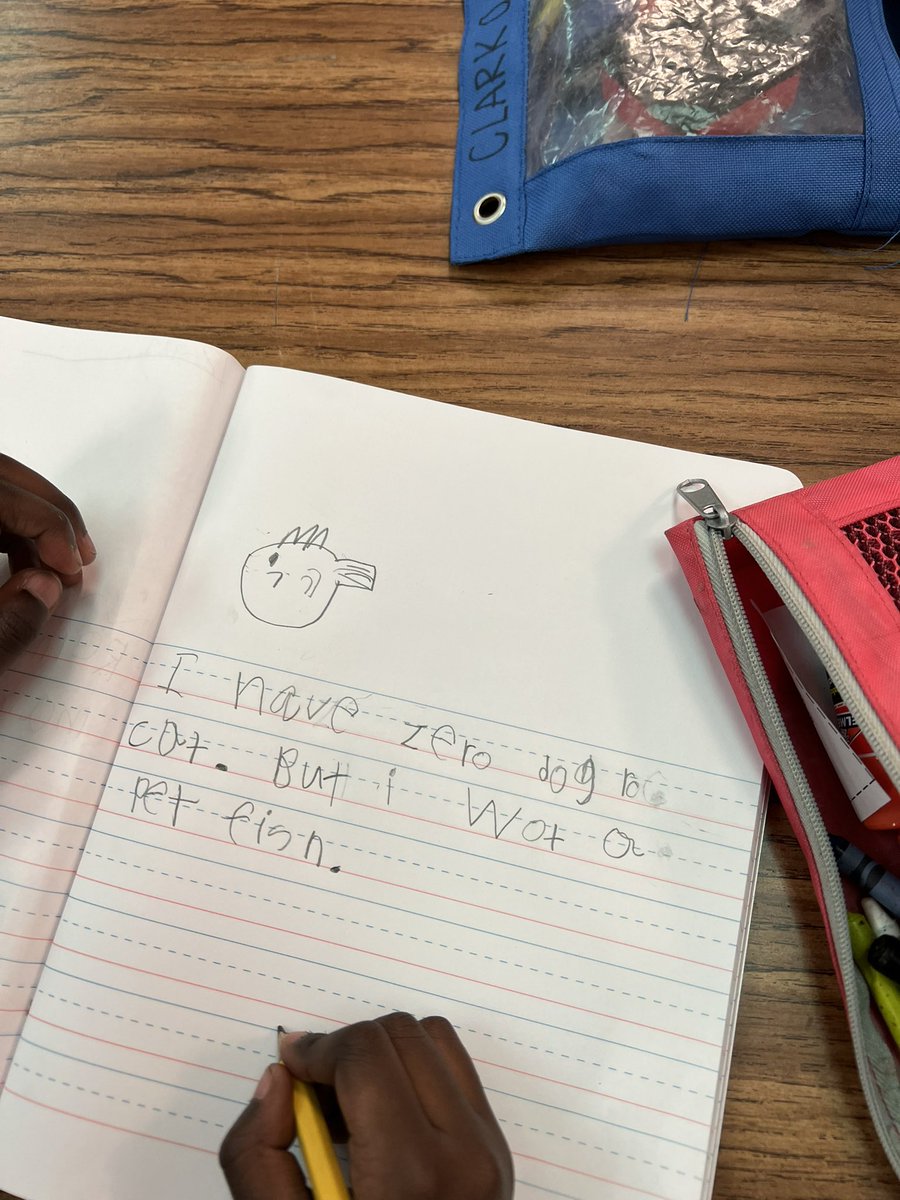 CLARKO
I have zero dog
cat. But i Wot a
Pet fish.